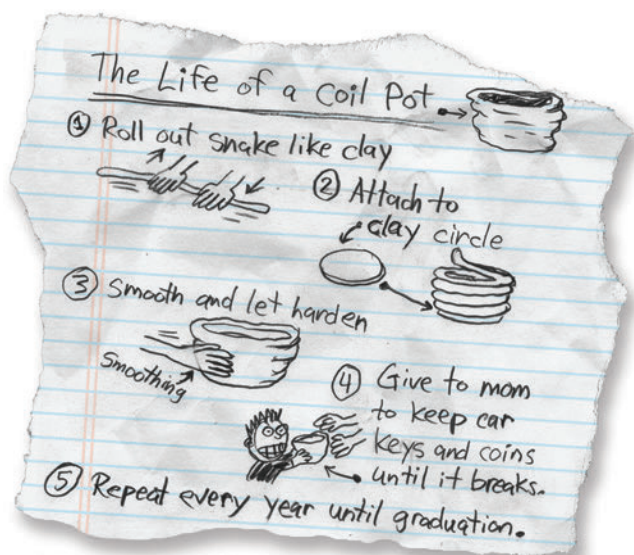 The Life of a Coil Pot
① Roll out snake like clay
② Attach to
clay circle
③ Smooth and let harden
Smoothing
④ Give to mom
to keep car
keys and coins
until it breaks.
⑤ Repeat every year until graduation.